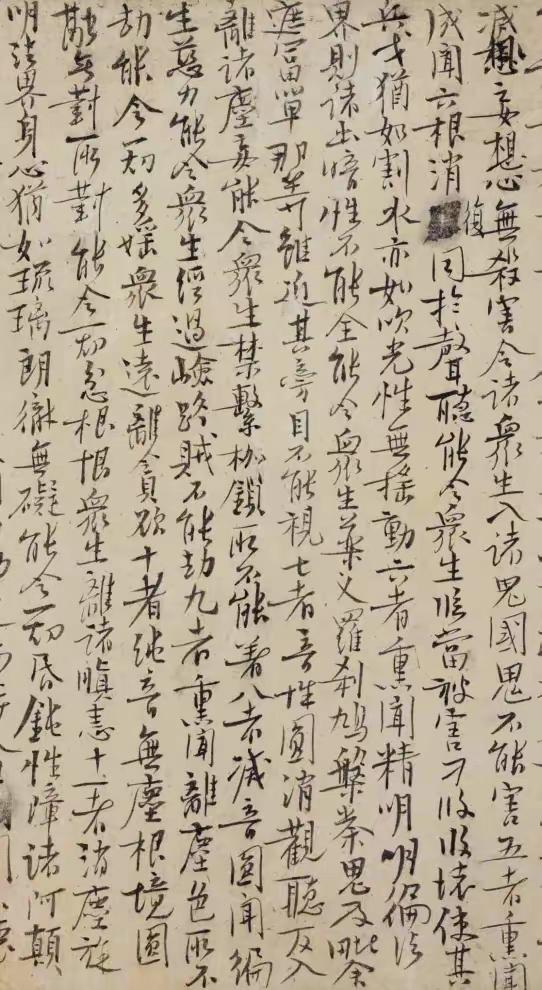 滅想妄想心無殺害令諸衆生入諸鬼國鬼不能害五者熏聞
成聞六根消復同於聲聽能令衆生臨當被害刀段段壞使其
兵戈猶如割水亦如吹光性無搖動六者熏聞精明明徧法
界則諸幽暗性不能全能令衆生藥叉羅刹鳩槃荼鬼及毗舍
遮富單那等雖近其旁目不能視七者音性圓消觀聽反入
離諸塵妄能令衆生禁繫枷鎖所不能著八者滅音圓聞徧
生慈力能令衆生經過嶮路賊不能劫九者熏聞離塵色所不
劫能令一切多婬衆生遠離貪欲十者純音無塵根境圓
融無對所對能令一切忿根恨衆生離諸瞋恚十一者消塵旋
明法界身心猶如琉璃朗徹無礙能令一切昏鈍性障諸阿顛